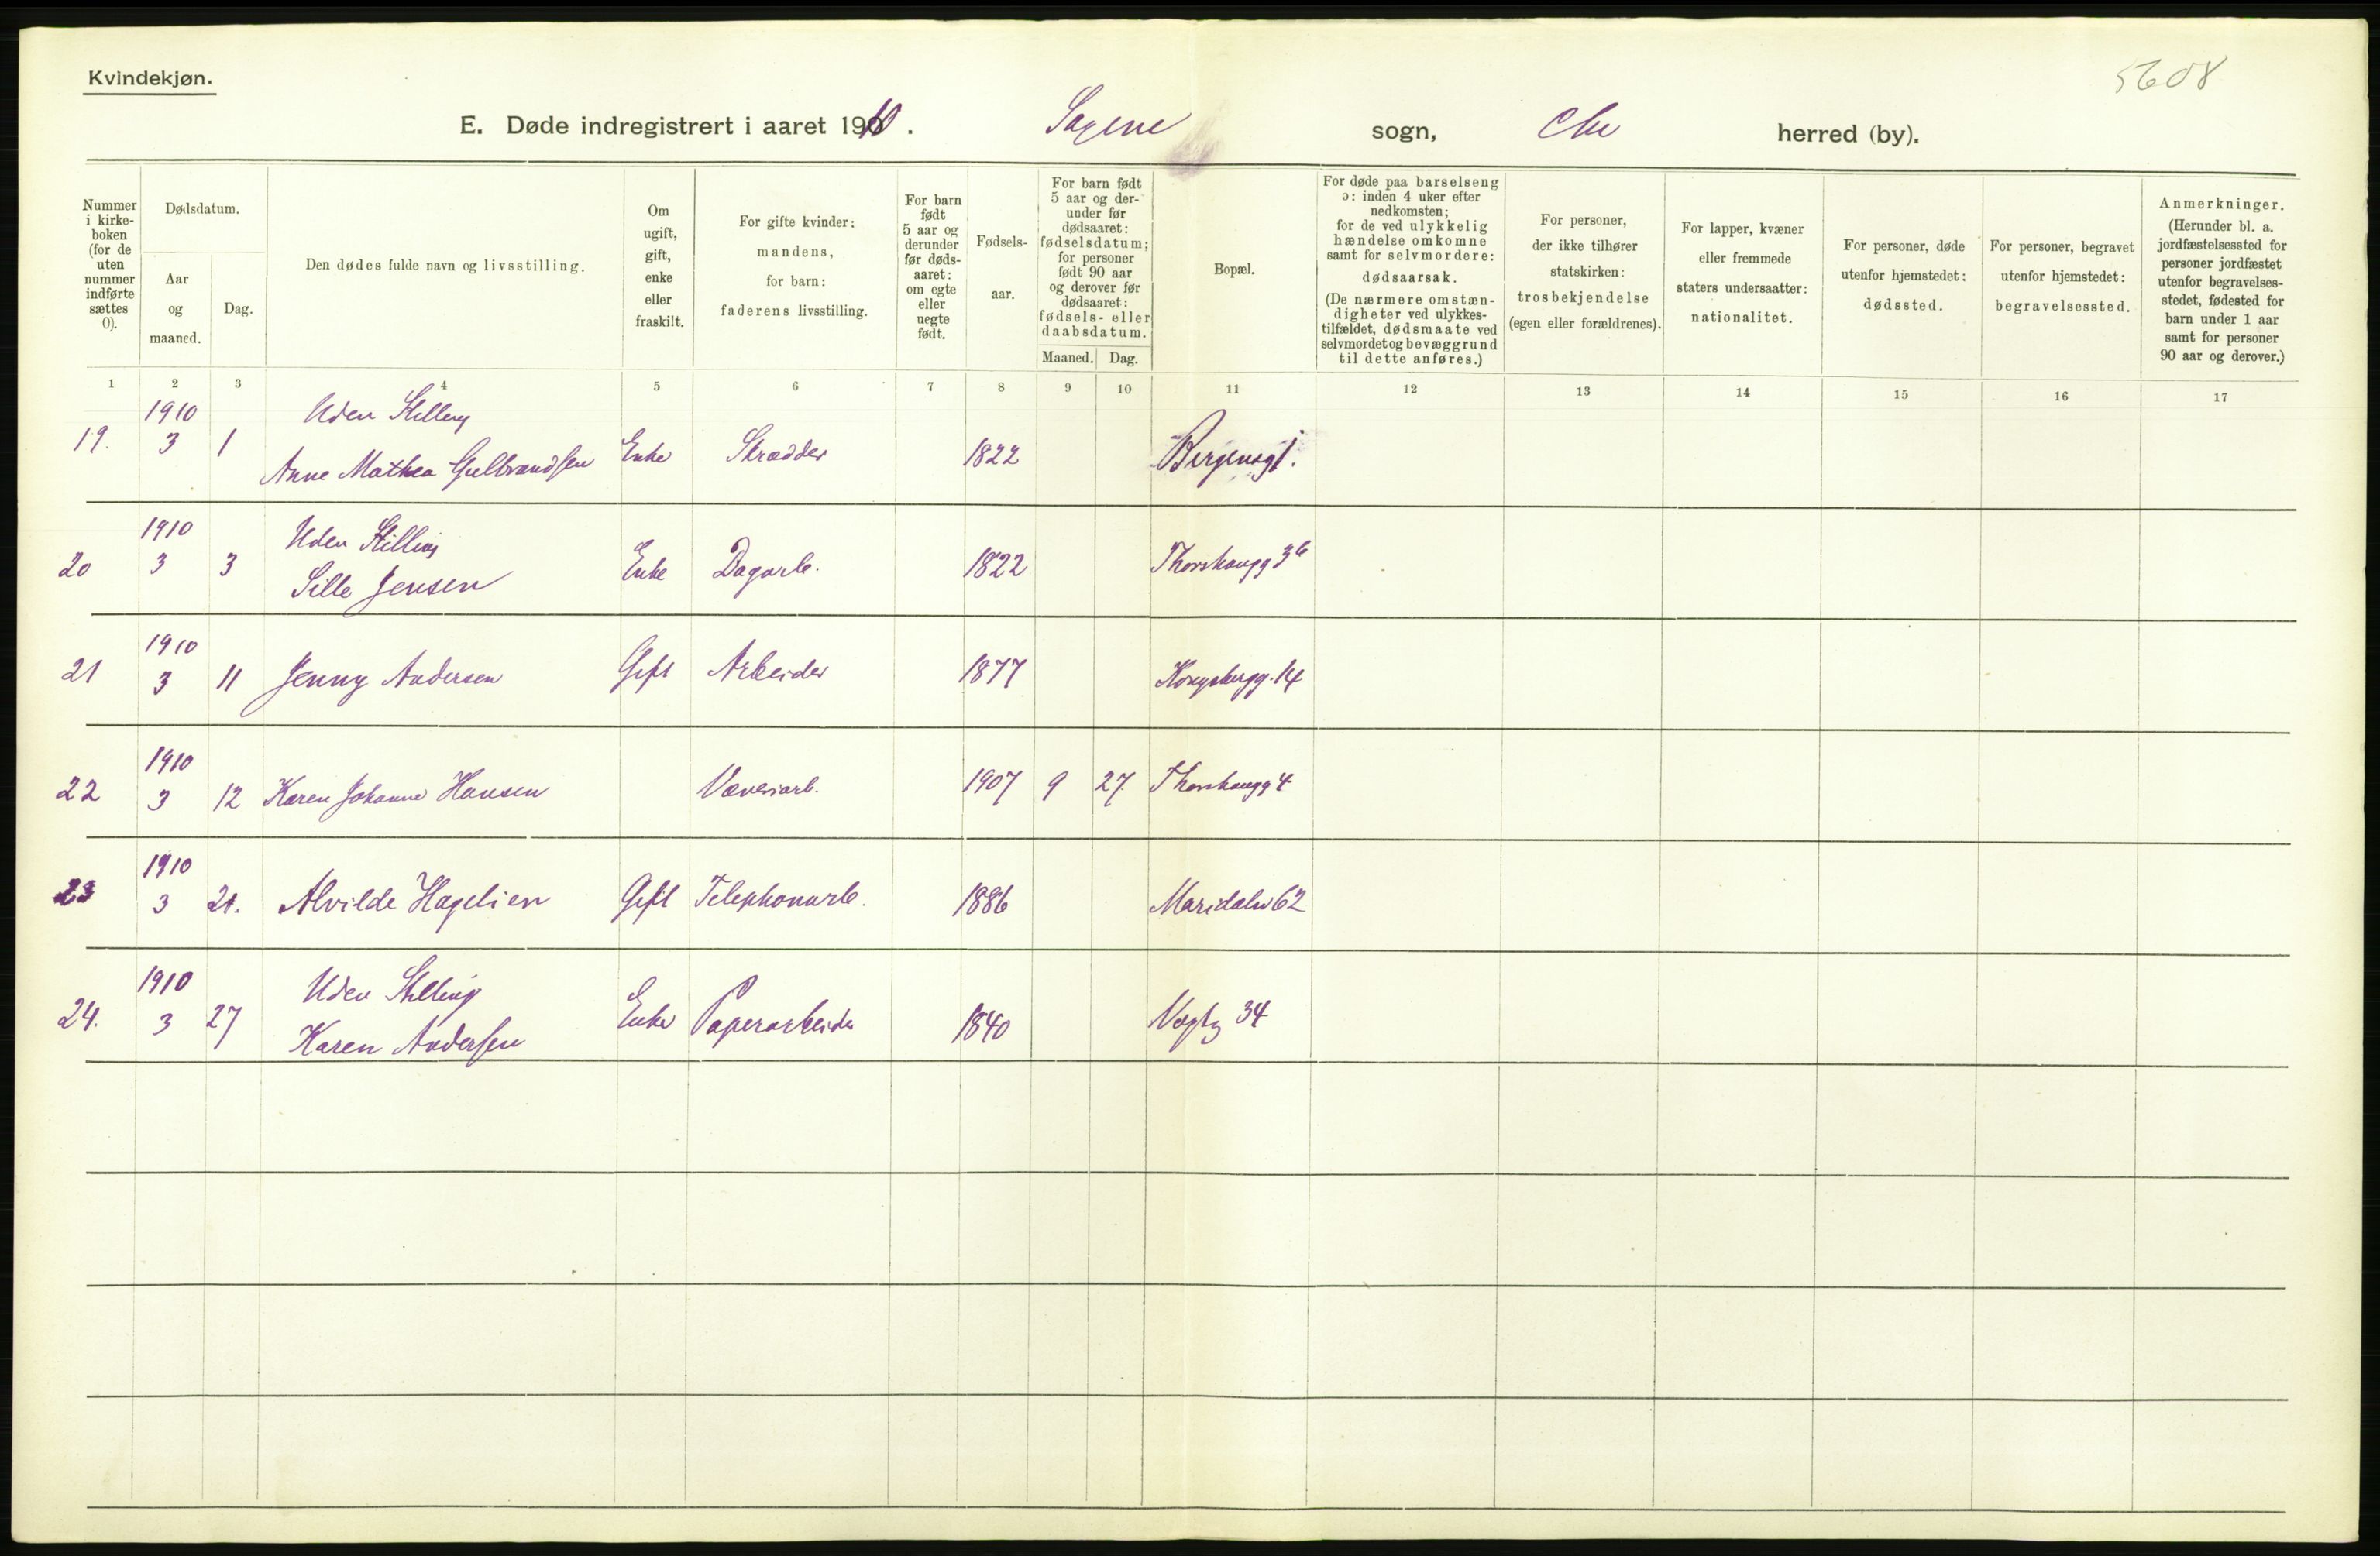 Kvindekjøn.
5608
E. Døde indregistrert i aaret 1910. Sagene sogn, Chr herred (by).
Nummer i kirkeboken (for de uten nummer indførte sættes 0).
Dødsdatum.
Aar og maaned.
Dag.
Den dødes fulde navn og livsstilling.
Om ugift, gift, enke eller fraskilt.
For gifte kvinder: mandens, for barn: faderens livsstilling.
For barn født 5 aar og derunder før dødsaaret: om egte eller uegte født.
Fødselsaar.
For barn født 5 aar og derunder før dødsaaret: fødselsdatum; for personer født 90 aar og derover før dødsaaret: fødsels- eller daabsdatum.
Maaned. Dag.
Bopæl.
For døde paa barselseng ɔ: inden 4 uker efter nedkomsten; for de ved ulykkelig hændelse omkomne samt for selvmordere: dødsaarsak.
(De nærmere omstændigheter ved ulykkestilfældet, dødsmaate ved selvmordet og bevæggrund til dette anføres.)
For personer, der ikke tilhører statskirken: trosbekjendelse (egen eller forældrenes).
For lapper, kvæner eller fremmede staters undersaatter: nationalitet.
For personer, døde utenfor hjemstedet: dødssted.
For personer, begravet utenfor hjemstedet: begravelsessted.
Anmerkninger.
(Herunder bl. a. jordfæstelsessted for personer jordfæstet utenfor begravelsesstedet, fødested for barn under 1 aar samt for personer 90 aar og derover.)
1 2 3 4 5 6 7 8 9 10 11 12 13 14 15 16 17
1910 Uden Stilling
19. 3 1 Anne Mathea Gulbrandsen Enke Skrædder 1822 Bergensg 1.
1910 Uden Stilling
20 3 3 Sille Jensen Enke Dagarb. 1822 Thorshaugg 36
1910
21 3 11 Jenny Andersen Gift Arbeider 1877 Kongsbergg. 14
1910
22 3 12 Karen Johanne Hansen Væveriarb. 1907 9 27. Thorshaugg 4
1910
23 3 21. Alvilde Hagelien Gift Telephonarb. 1886 Maridalsv 62
1910 Uden Stilling
24. 3 27 Karen Andersen Enke Papirarbeider 1840 34